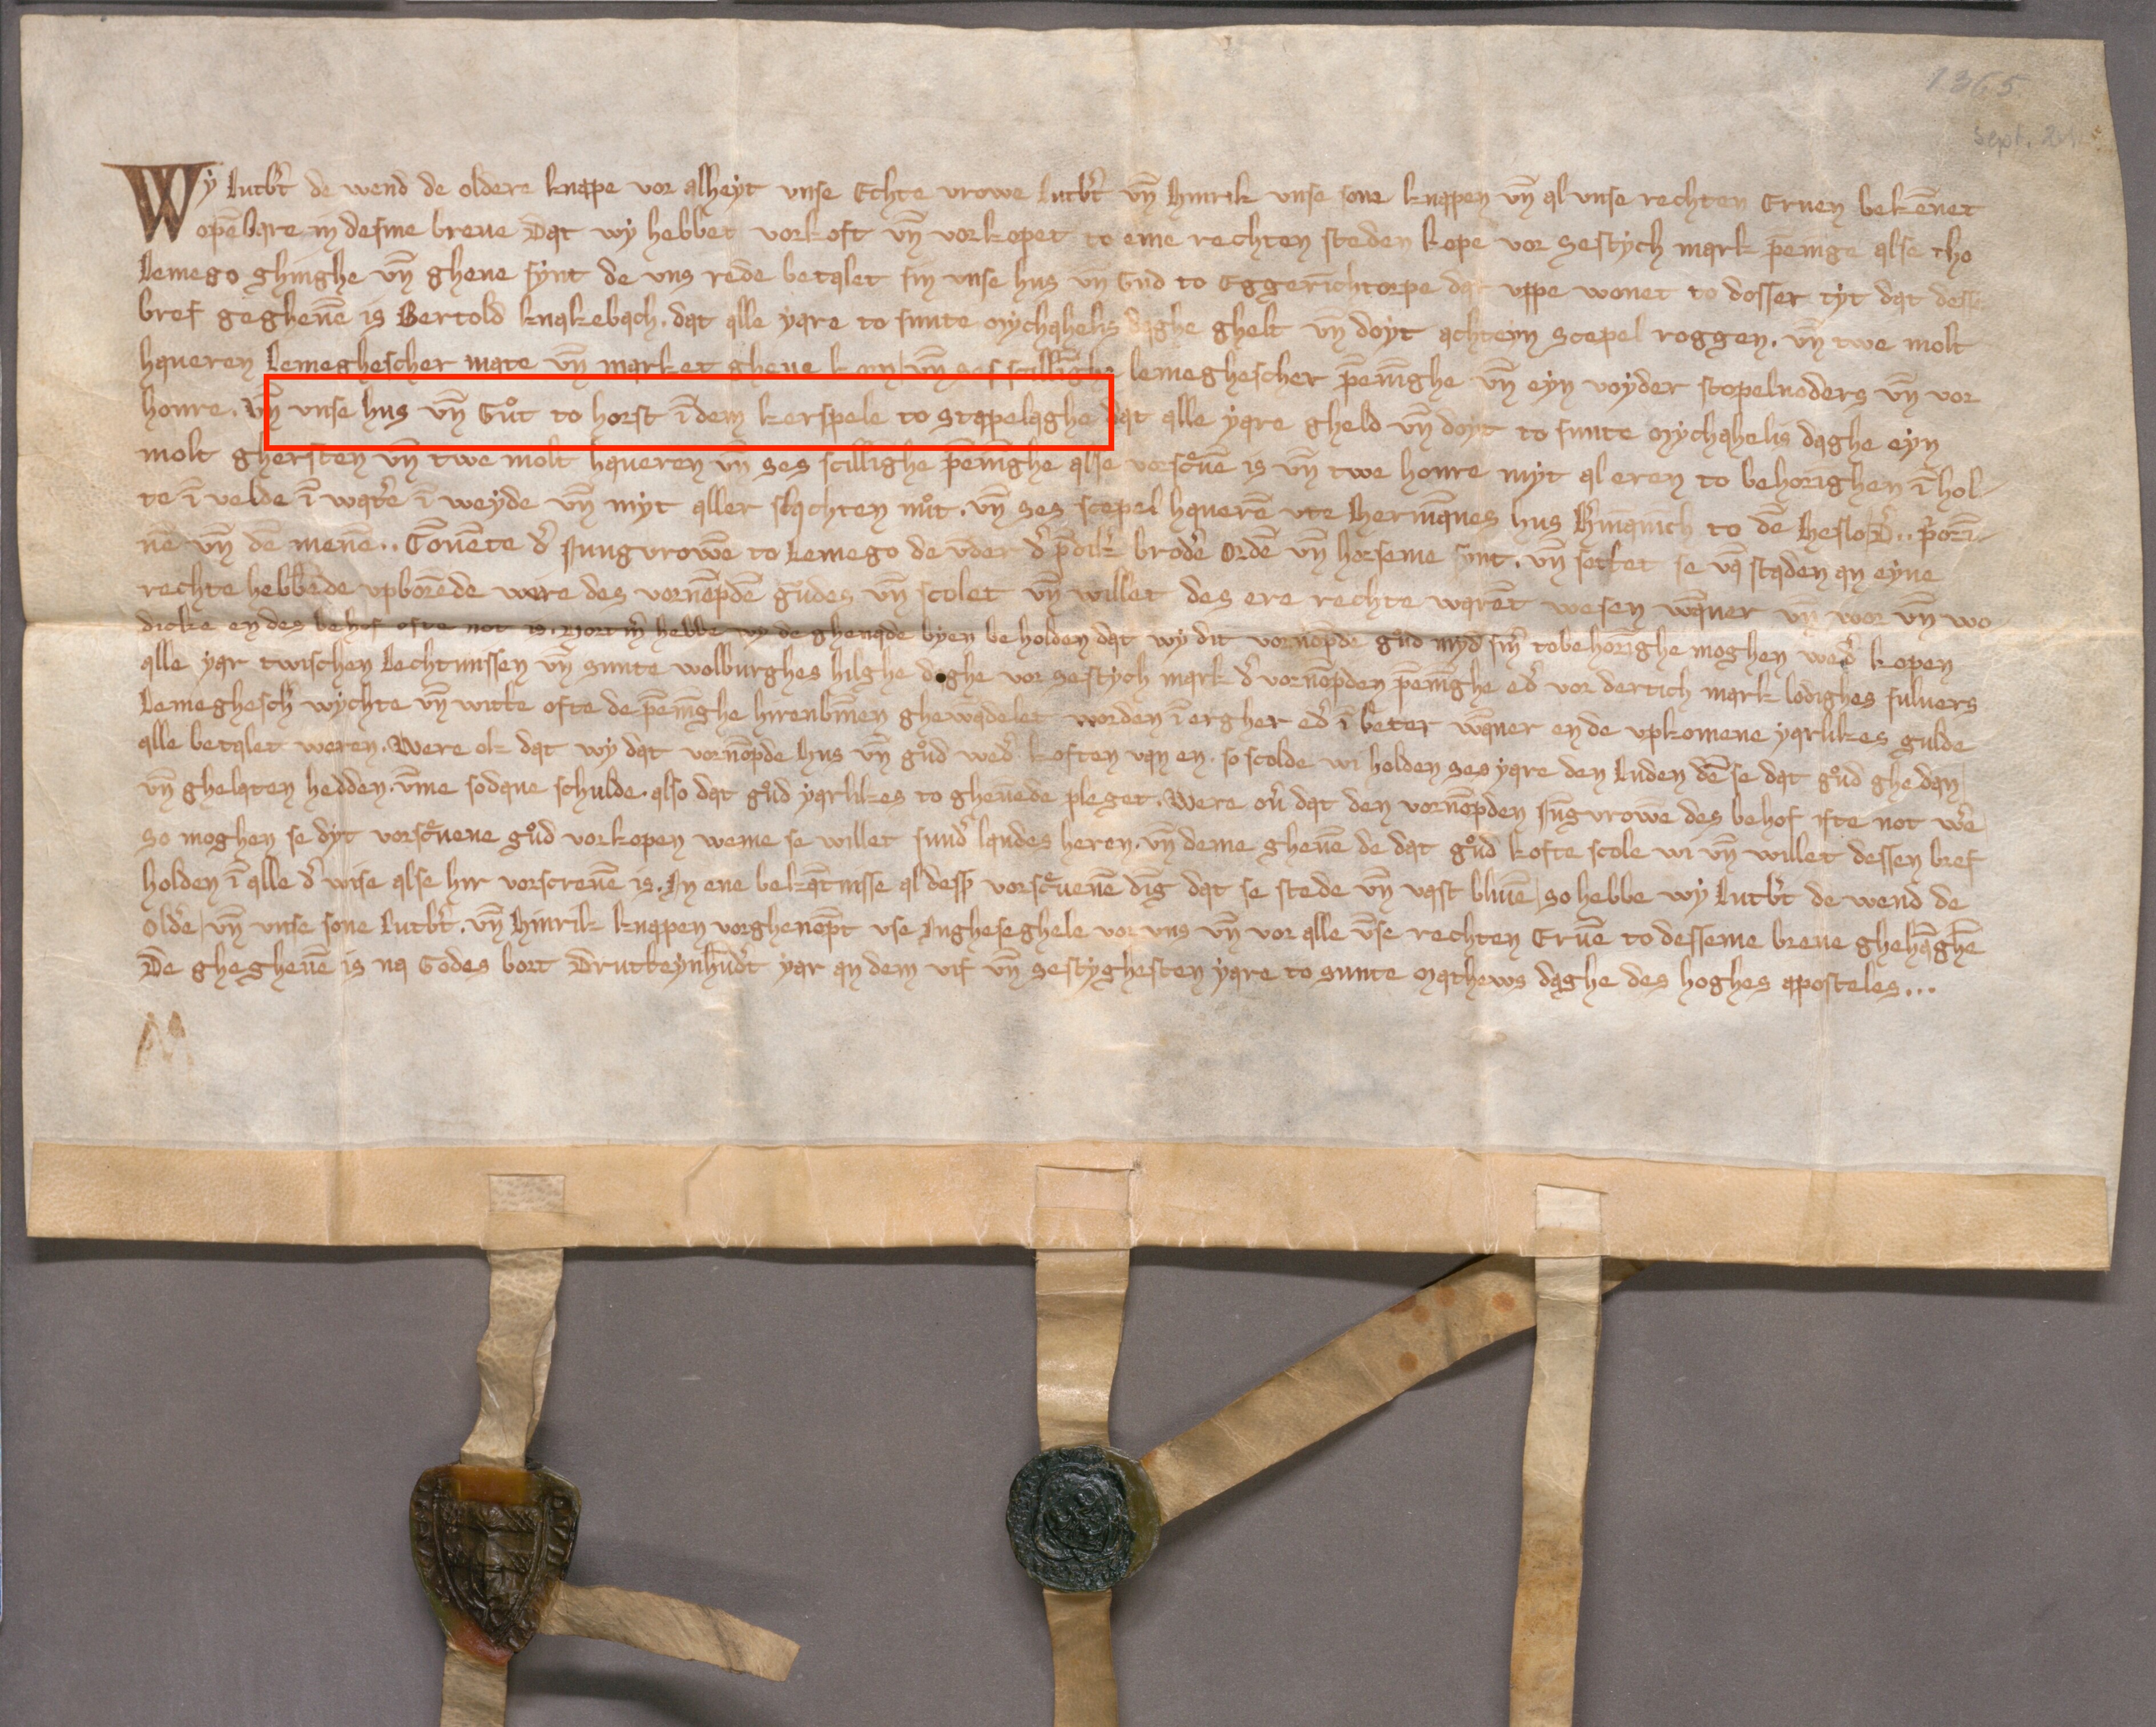 1365
Sept. 21
Wy lutbt̄ de wend de oldere knape vor alheyt vnse Echte vrowe lutbt̄ vn̄ hinrik vnse sone knapen vn̄ al vnse rechten Eruen bekēnet
opēbare in desme breue Dat wy hebbet vorkoft vn̄ vorkopet to eme rechten steden kope vor sestych mark pēnige alse tho
lemego ghinghe vn̄ gheue synt de vns rede betalet sin vnse hus vn̄ Gud to Eggerichtorpe dar vppe wonet to dosser tyt dat desse
bref gegheuē is Bertold knakebach. dat alle yare to sunte mychahelis daghe ghelt vn̄ doyt achteyn scepel roggen. vn̄ twe molt
haueren lemeghescher mate vn̄ market gheue korn vn̄ ses scillīghe lemeghescher pēnīghe vn̄ eyn voyder stopelvoders vn̄ vor
honre. vn̄ vnse hus vn̄ Guͦt to horst ī dem kerspele to stapelaghe dat alle yare gheld vn̄ doyt to sunte mychahelis daghe eyn
molt ghersten vn̄ twe molt haueren vn̄ ses scillīghe pēnīghe alse vorscͬuē is vn̄ twe honre myt al eren to behorīghen ī hol-
te ī velde ī watͤe ī weyde vn̄ myt aller slachten nuͦt. vn̄ ses scepel hauerē vte hermānes hus hͤmāninch to dē heslo dͤ.. pͥorī-
nē vn̄ dē menē.. Couēte dͤ Jungvrowē to lemego de vnder dͤ pͤdikͤ brodͤe Ordē vn̄ horseme synt. vn̄ settet se vā staden an eyne
rechte hebbēde vpborēde were des vornōpdē guͦdes vn̄ scolet vn̄ willet des ere rechte warēt wesen wāner vn̄ wor vn̄ wo
dicke en des behof ofte not is. vortm̄ hebbe wy de ghenade hyen beholden dat wy dit vornōpde guͦd myd sīn tobehorīghe moghen wedͤ kopen
alle yar twischen lechtmissen vn̄ sunte wolburghes hilghe daghe vor sestych mark dͤ vornōpden pēnīghe edͤ vor dertich mark lodighes suluers
lemegheschͤ wychte vn̄ witte ofte de pēnīghe hirenbīnen ghewādelet worden ī ergher edͤ ī beter wāner en de vpkomene yarlikes gulde
alle betalet weren. Were ok dat wy dat vornōpde hus vn̄ guͦd wedͤ koften van en. so scolde wi holden ses yare den luden dē se dat guͦd ghe dan
vn̄ ghelaten hedden. vm̄e sodane schulde. also dat guͦd yarlikes to gheuēde pleget. Were ouͤ dat den vornōpden Jūgvrowē des behof ifte not wͤe
so moghen se dyt vorscͬuene guͦd vorkopen weme se willet sundͤ landes heren. vn̄ deme gheuē de dat guͦd kofte scole wi vn̄ willet dessen bref
holden ī alle dͤ wise alse hir vorscreuē is. In ene bekātnisse al dessͤ vorscͬuenē dīg dat se stede vn̄ vast bliuē so hebbe wy lutbt̄ de wend de
oldͤe vn̄ vnse sone lutbt̄. vn̄ hinrik knapen vorghenōpt vse Ingheseghele vor vns vn̄ vor alle vn̄se rechten Eruē to desseme breue ghehāghē
De ghegheuē is na Godes bort Drutteynhūdͤt yar an dem vif vn̄ sestyghesten yare to sunte Mathews daghe des hoghes aposteles...